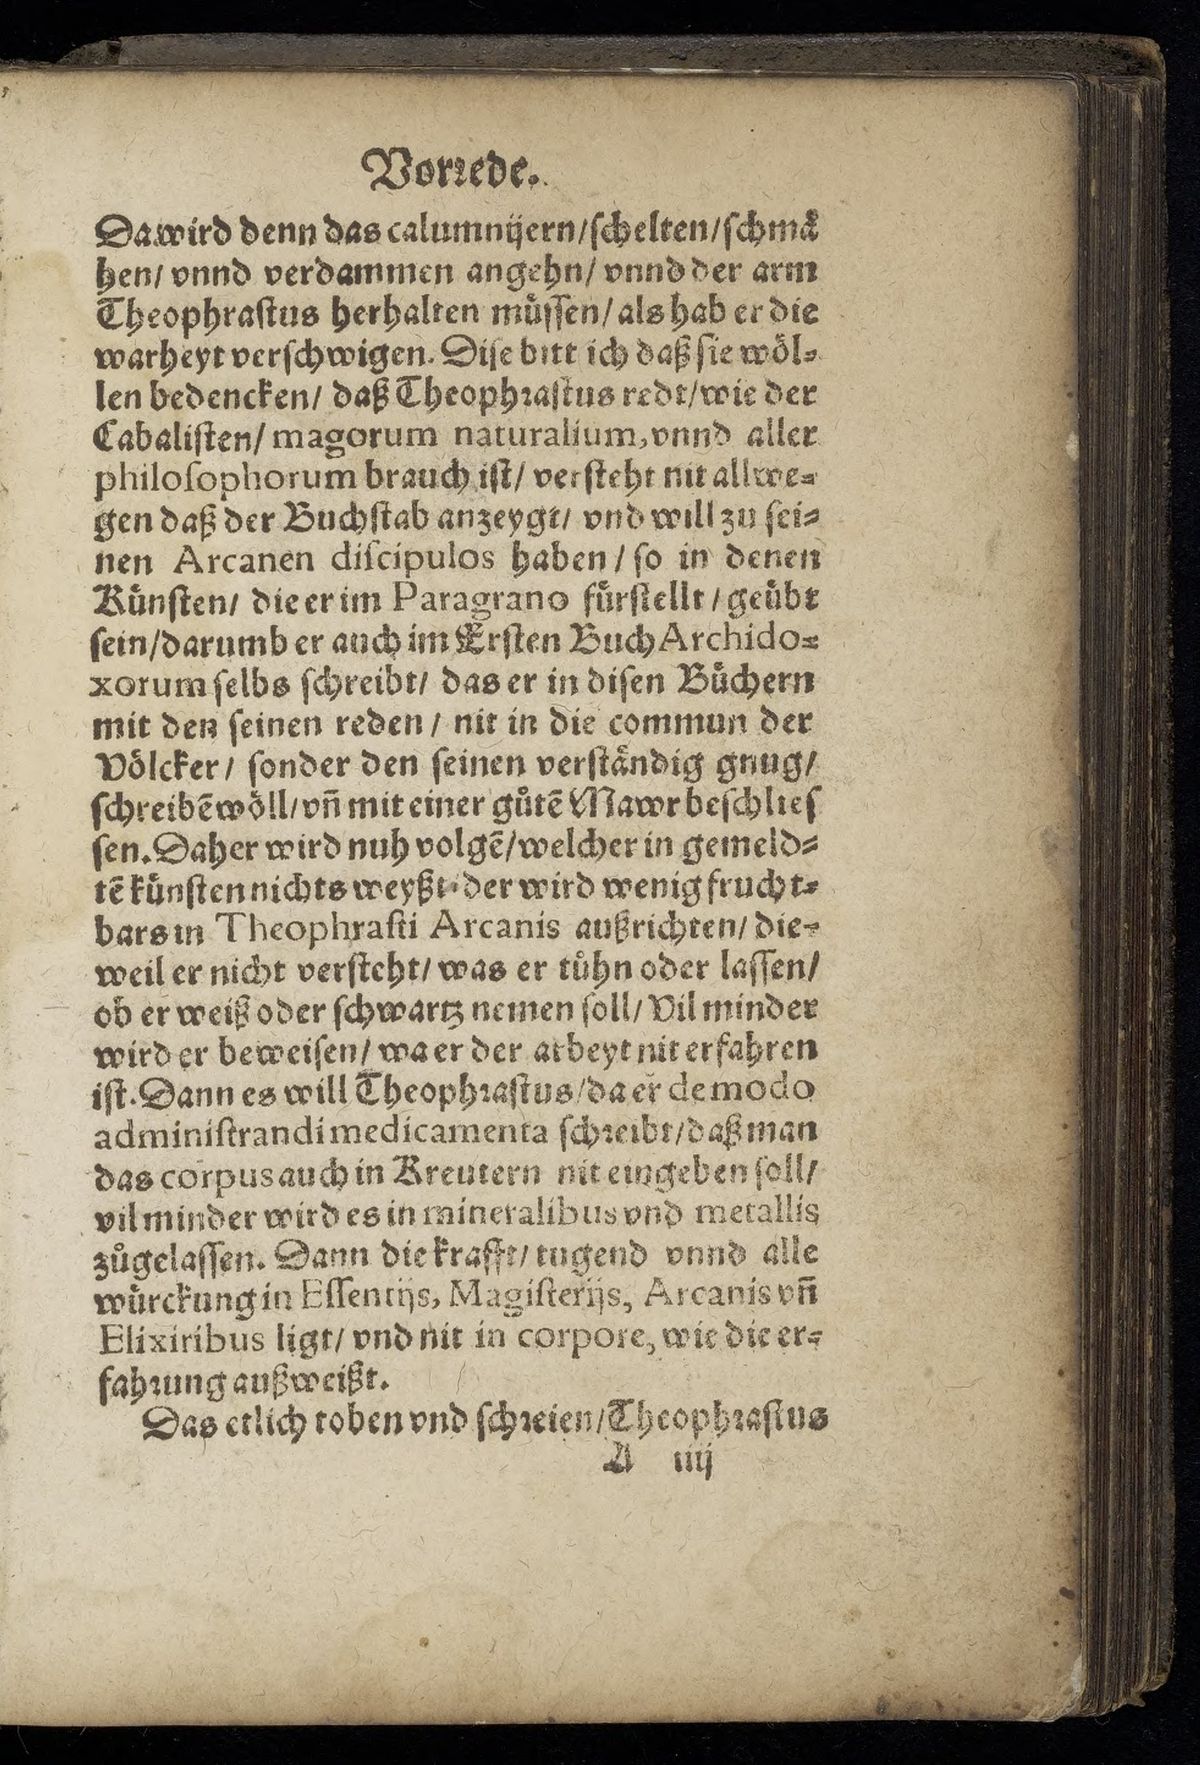 Vorꝛede.
Da wird denn das calumnijern/ſchelten/ſchmaͤ
hen/ vnnd verdammen angehn/ vnnd der arm
Theophraſtus herhalten muͤſſen/ als hab er die
warheyt verſchwigen. Diſe bitt ich daß ſie woͤl-
len bedencken/ daß Theophꝛaſtus redt/wie der
Cabaliſten/ magorum naturalium, vnnd aller
philoſophorum brauch iſt/ verſteht nit allwe-
gen daß der Buchſtab anzeygt/ vnd will zu ſei-
nen Arcanen diſcipulos haben / ſo in denen
Kuͤnſten/ die er im Paragrano fuͤrſtellt / geuͤbt
ſein/darumb er auch im Erſten Buch Archido-
xorum ſelbs ſchreibt/ das er in diſen Buͤchern
mit den ſeinen reden / nit in die commun der
Voͤlcker / ſonder den ſeinen verſtaͤndig gnug/
ſchreibē woͤll/ vñ mit einer guͦtē Mawr beſchlieſ
ſen. Daher wird nuh volgē/welcher in gemeld-
tē kuͤnſten nichts weyßt/ der wird wenig frucht-
bars in Theophraſti Arcanis außrichten/ die-
weil er nicht verſteht/ was er tuͦhn oder laſſen/
ob er weiß oder ſchwartz nemen ſoll/ Vil minder
wird er beweiſen/ wa er der arbeyt nit erfahren
iſt. Dann es will Theophꝛaſtus/da er de modo
adminiſtrandi medicamenta ſchꝛeibt/daß man
das corpus auch in Kreutern nit eingeben ſoll/
vil minder wird es in mineralibus vnd metallis
zuͦgelaſſen. Dann die krafft/ tugend vnnd alle
wuͤrckung in Eſſentijs, Magiſterijs, Arcanis vñ
Elixiribus ligt/ vnd nit in corpore, wie die er-
fahꝛung außweißt.
Das etlich toben vnd ſchꝛeien/Theophꝛaſtus
A iiij